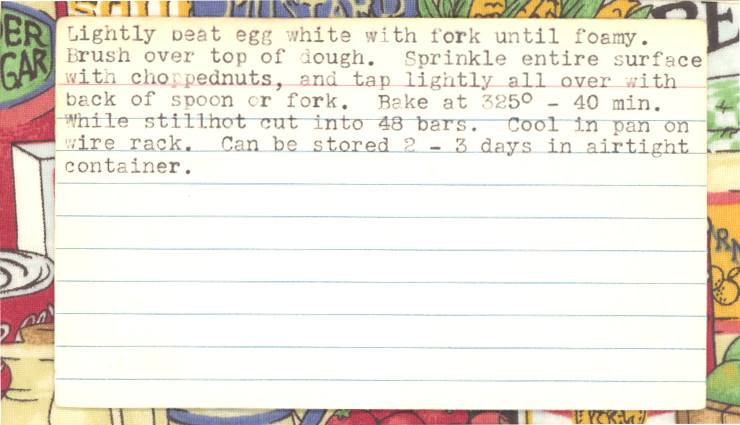 Lightly beat egg white with fork until foamy.
Brush over top of dough. Sprinkle entire surface
with choppednuts, and tap lightly all over with
back of spoon or fork. Bake at 325° - 40 min.
While stillhot cut into 48 bars. Cool in pan on
wire rack. Can be stored 2 - 3 days in airtight
container.
ER
GAR